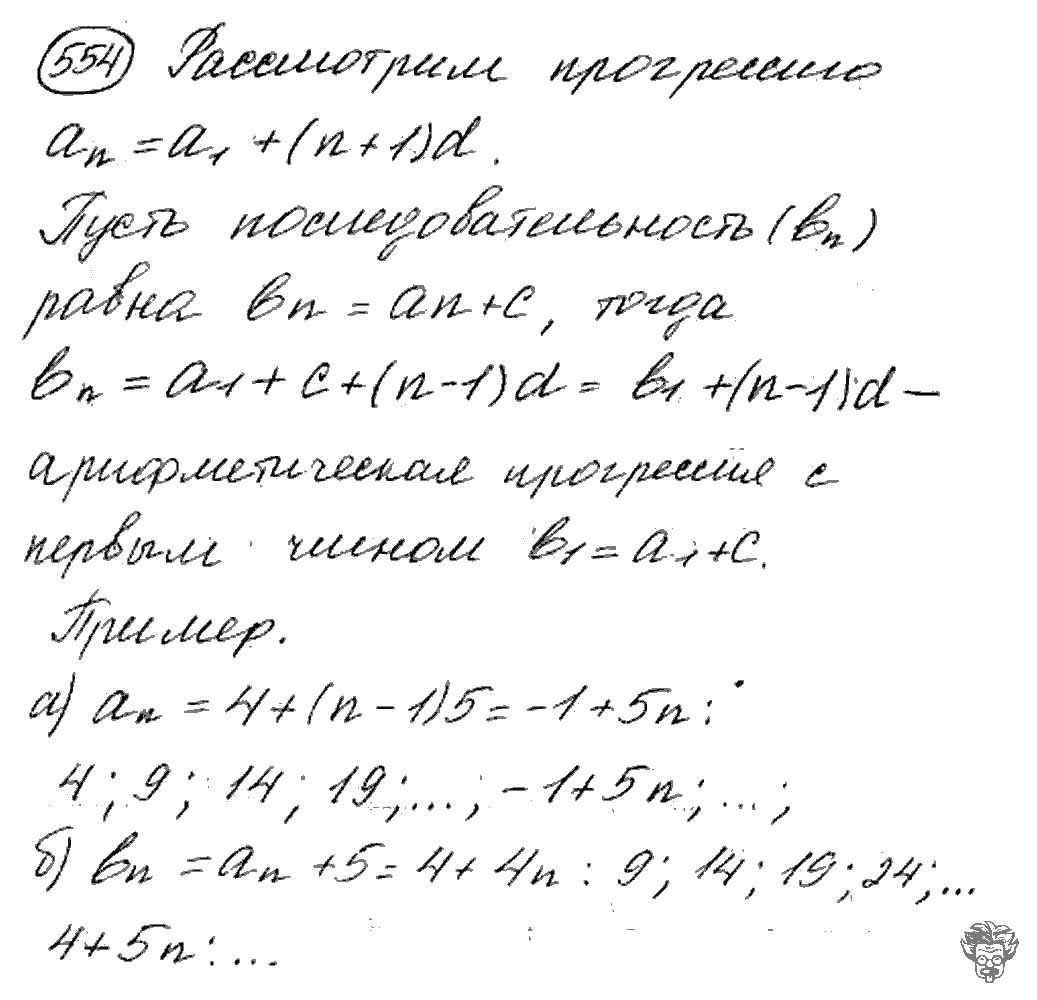 554 Рассмотрим прогрессию
aₙ = a₁ + (n+1)d.
Пусть последовательность (bₙ)
равна bn = an + c, тогда
bₙ = a₁ + c + (n-1)d = b₁ + (n-1)d —
арифметическая прогрессия с
первым числом b₁ = a₁ + c.
Пример.
а) aₙ = 4 + (n-1)5 = -1 + 5n:
4; 9; 14; 19; ...; -1 + 5n; ...;
б) bₙ = aₙ + 5 = 4 + 4n : 9; 14; 19; 24; ...
4 + 5n: ...